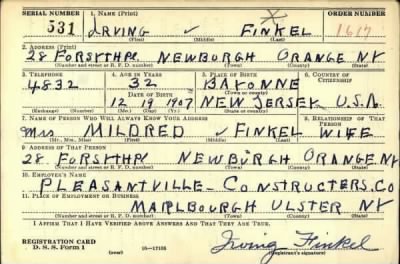 SERIAL NUMBER 1. NAME (Print) ORDER NUMBER
531 IRVING ✓ FINKEL 1617
(First) (Middle) (Last)
2. ADDRESS (Print)
28 FORSYTHPL NEWBURGH ORANGE NY
(Number and street or R. F. D. number) (Town) (County) (State)
3. TELEPHONE 4. AGE IN YEARS 5. PLACE OF BIRTH 6. COUNTRY OF CITIZENSHIP
4832 32 BAYONNE
DATE OF BIRTH (Town or county)
12 19 1907 NEW JERSEY U.S.A.
(Exchange) (Number) (Mo.) (Day) (Yr.) (State or country)
7. NAME OF PERSON WHO WILL ALWAYS KNOW YOUR ADDRESS 8. RELATIONSHIP OF THAT PERSON
Mrs MILDRED ✓ FINKEL WIFE
(Mr., Mrs., Miss) (First) (Middle) (Last)
9. ADDRESS OF THAT PERSON
28. FORSYTHPL NEWBURGH ORANGE NY
(Number and street or R. F. D. number) (Town) (County) (State)
10. EMPLOYER'S NAME
PLEASANTVILLE CONSTRUCTERS. CO
11. PLACE OF EMPLOYMENT OR BUSINESS
MARLBOURGH ULSTER NY
(Number and street or R. F. D. number) (Town) (County) (State)
I AFFIRM THAT I HAVE VERIFIED ABOVE ANSWERS AND THAT THEY ARE TRUE.
REGISTRATION CARD
D. S. S. Form 1 (over) 16—17105 Irving Finkel
(Registrant's signature)